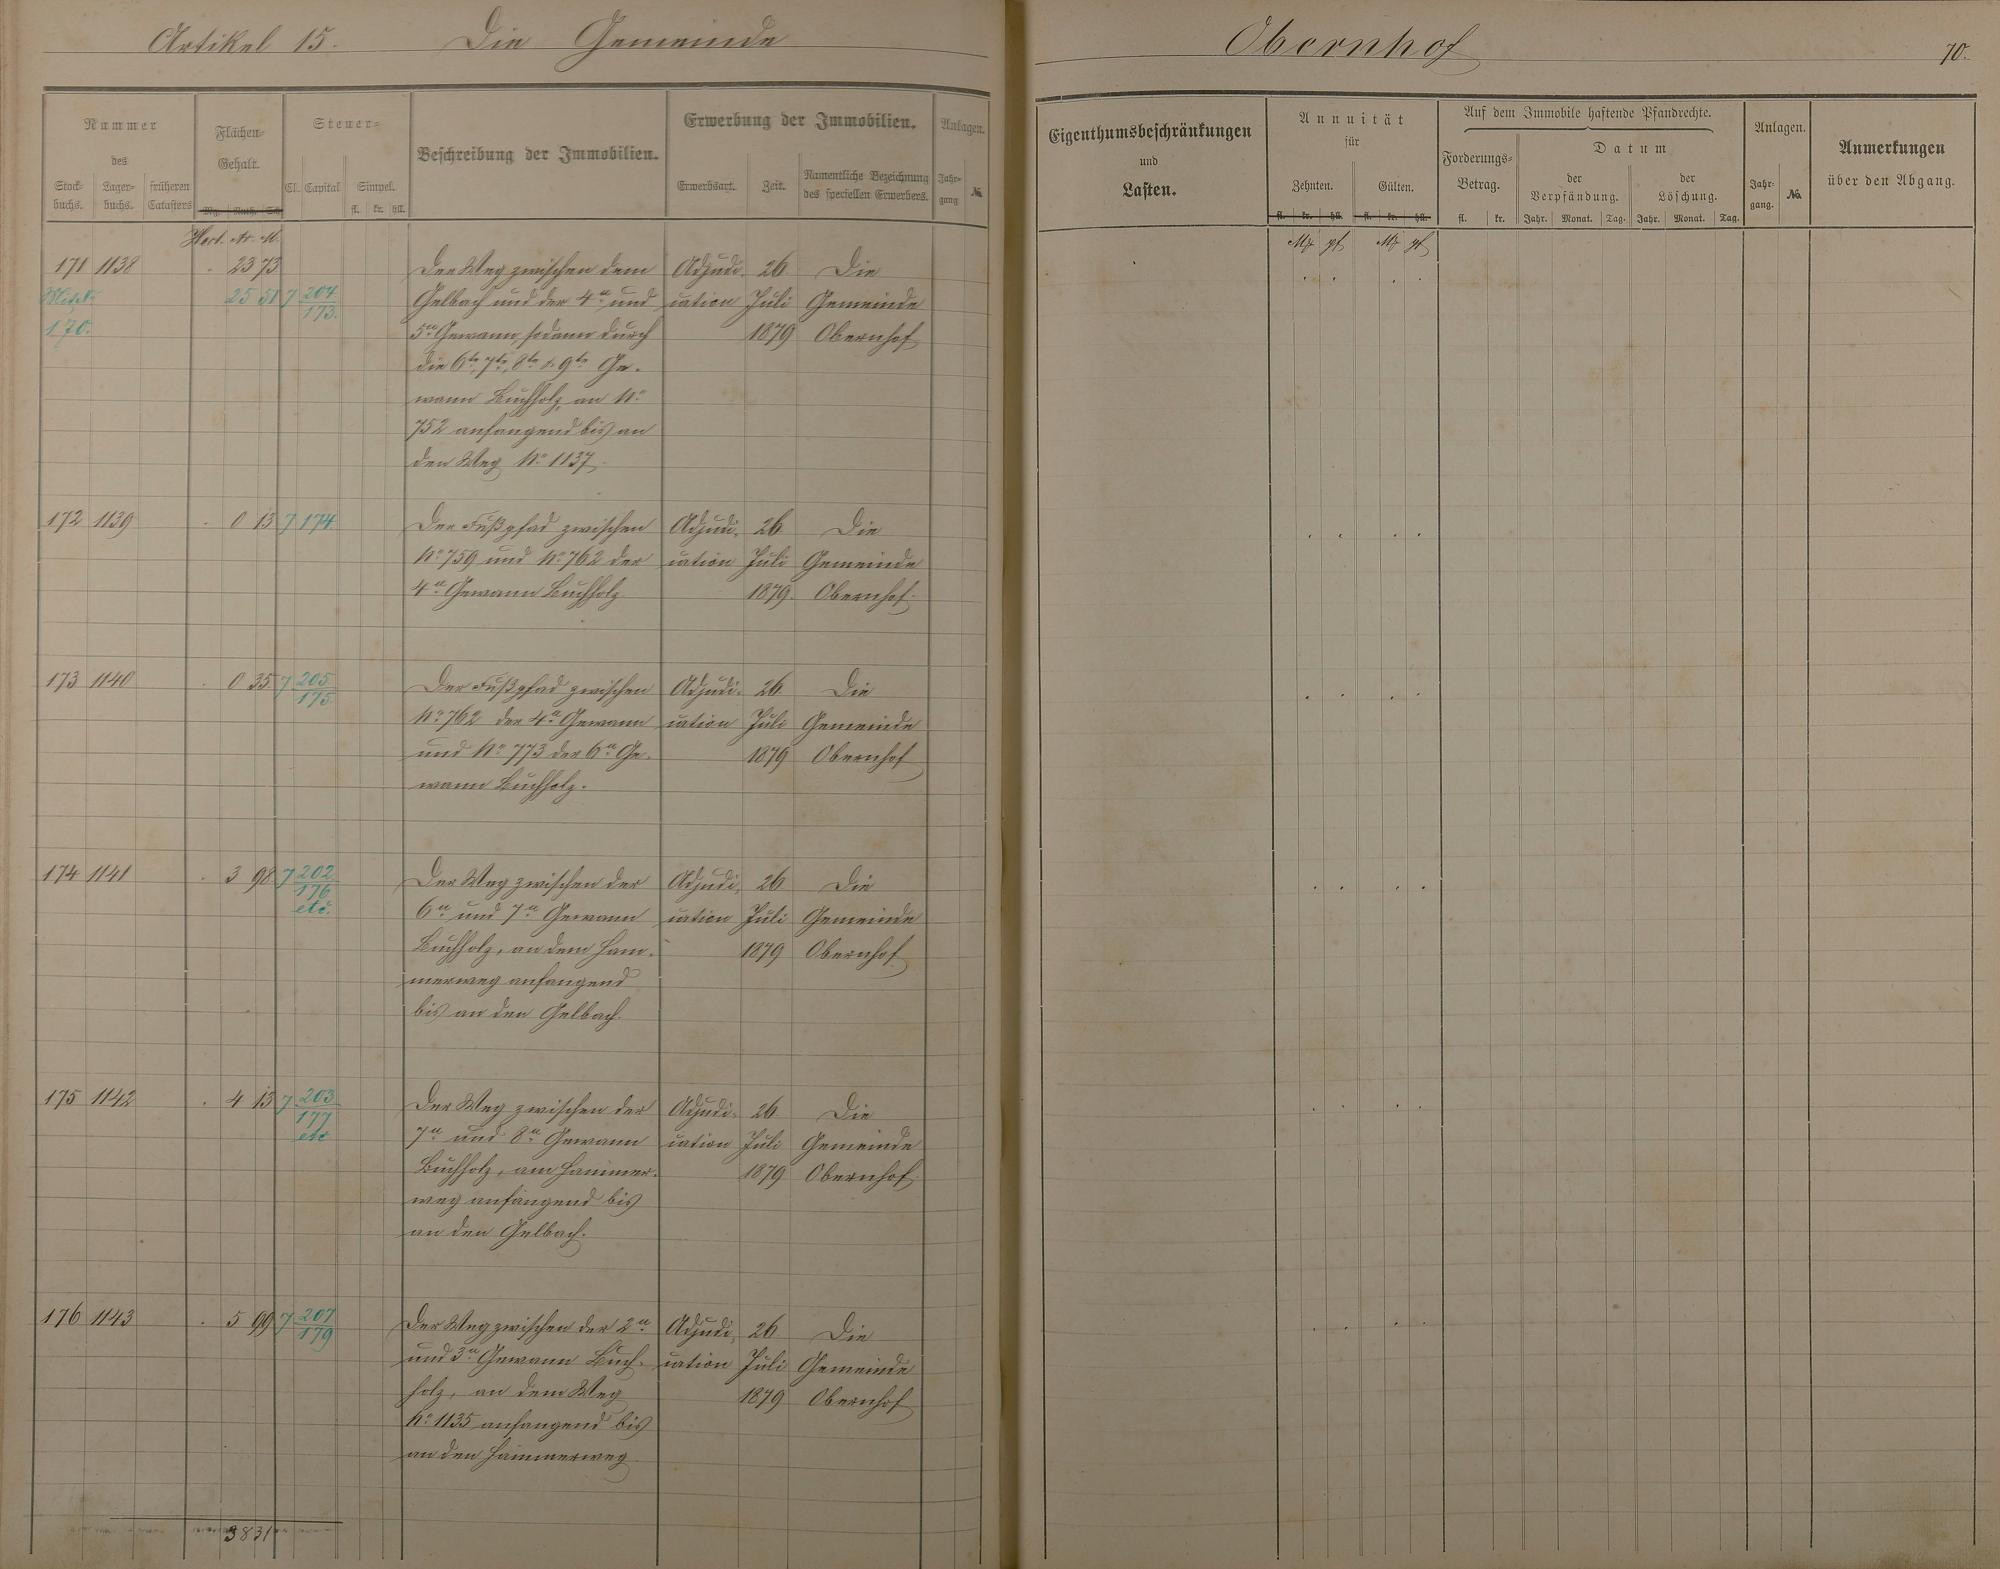 Artikel 15. Die Gemeinde Obernhof 70.
Nummer
des
Stock-buchs. Lager-buchs. früheren Catasters
Flächen-Gehalt.
Mg. Ruth. Sch.
Steuer-
Cl. Capital Simpel.
fl. kr. hll.
Beschreibung der Immobilien.
Erwerbung der Immobilien.
Erwerbsart. Zeit. Namentliche Bezeichnung des speciellen Erwerbers.
Anlagen.
Jahr-gang №.
Eigenthumsbeschränkungen
und
Lasten.
Annuität
für
Zehnten. Gülten.
fl. kr. hll. fl. kr. hll.
Auf dem Immobile haftende Pfandrechte.
Forderungs-Betrag.
fl. kr.
Datum
der Verpfändung. der Löschung.
Jahr. Monat. Tag. Jahr. Monat. Tag.
Anlagen.
Jahr-gang. №.
Anmerkungen
über den Abgang.
Hect. Ar. M.
Mk pf Mk pf
171 1138 . 23 73 Der Weg zwischen dem Adjudi- 26 Die
25 51 7 204 Gelbach und der 4n und cation Juli Gemeinde
170. 173. 5n Gewann, sodann durch 1879 Obernhof
die 6te, 7te, 8te & 9te Ge-
wann Buchholz, an No
752 anfangend bis an
den Weg No 1137.
172 1139 . 0 13 7 174 Der Fußpfad zwischen Adjudi- 26 Die
No 759 und No 762 der cation Juli Gemeinde
4n Gewann Buchholz 1879. Obernhof.
173 1140 . 0 35 7 205 Der Fußpfad zwischen Adjudi- 26 Die
175. No 762 der 4n Gewann cation Juli Gemeinde
und No 773 der 6n Ge- 1879 Obernhof
wann Buchholz.
174 1141 . 3 98 7 202 Der Weg zwischen der Adjudi- 26 Die
176 6n und 7n Gewann cation Juli Gemeinde
etc. Buchholz, an dem Ham- 1879 Obernhof
merweg anfangend
bis an den Gelbach.
175 1142 . 4 13 7 203 Der Weg zwischen der Adjudi- 26 Die
177 7n und 8n Gewann cation Juli Gemeinde
etc Buchholz, am Hammer- 1879 Obernhof
weg anfangend bis
an den Gelbach.
176 1143 . 5 99 7 207 Der Weg zwischen der 2n Adjudi- 26 Die
179 und 3n Gewann Buch- cation Juli Gemeinde
holz, an dem Weg 1879 Obernhof
No 1135 anfangend bis
an den Hammerweg
3831